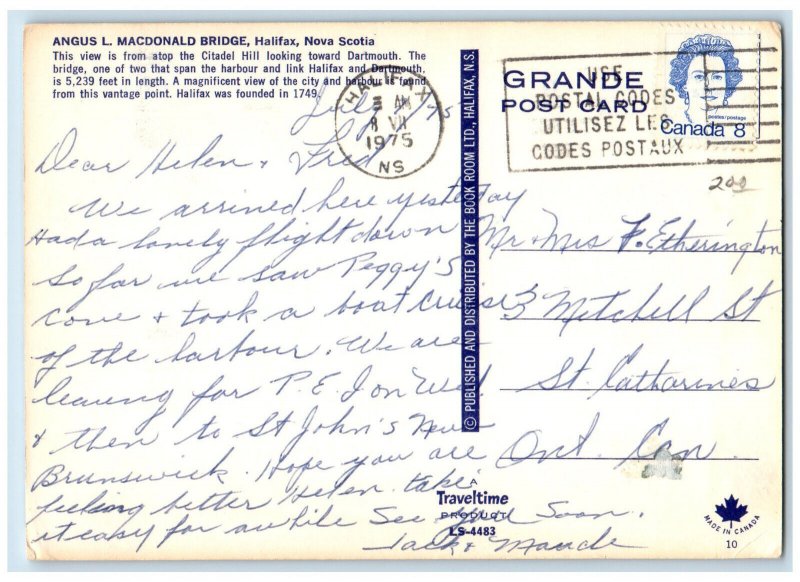 ANGUS L. MACDONALD BRIDGE, Halifax, Nova Scotia
This view is from atop the Citadel Hill looking toward Dartmouth. The
bridge, one of two that span the harbour and link Halifax and Dartmouth,
is 5,239 feet in length. A magnificent view of the city and harbour is found
from this vantage point. Halifax was founded in 1749.
HALIFAX
3 AM
8 VII
1975
NS
USE
POSTAL CODES
UTILISEZ LES
CODES POSTAUX
GRANDE
POST CARD
postes/postage
Canada 8
200
July 7/75
Dear Helen & Fred
We arrived here yesterday
Had a lovely flight down
so far we saw Peggy's
cove & took a boat cruise
of the harbour. We are
leaving for P.E.I on Wed.
& then to St John's New
Brunswick. Hope you are
feeling better Helen. take
it easy for awhile See you Soon.
Jack & Maude
© PUBLISHED AND DISTRIBUTED BY THE BOOK ROOM LTD., HALIFAX, N.S.
Mr & Mrs F. Etherington
3 Mitchell St
St. Catharines
Ont. Can.
A
Traveltime
PRODUCT
LS-4483
MADE IN CANADA
10